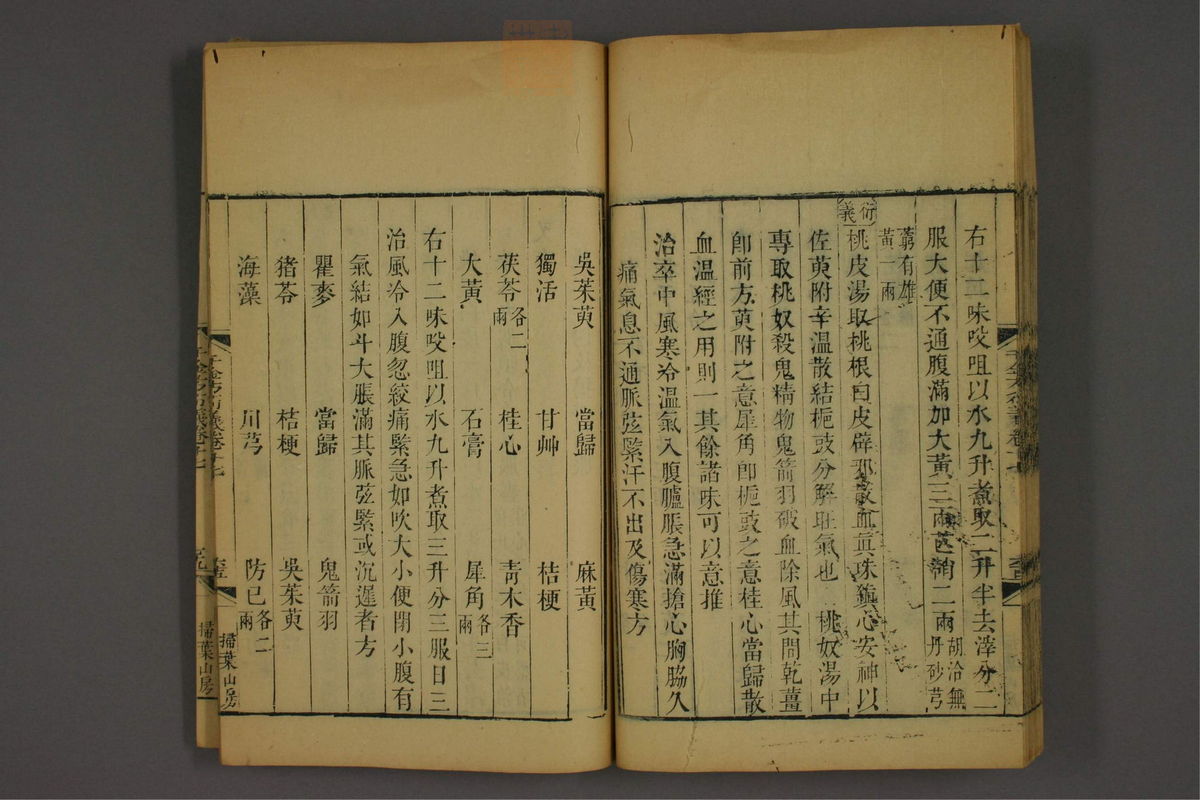 右十二味㕮咀以水九升煮取二升半去滓分二
服大便不通腹滿加大黃三兩芒硝二兩胡洽無丹砂芎
藭有雄黃一兩
衍義
桃皮湯取桃根白皮辟邪散血真珠鎮心安神以
佐萸附辛溫散結梔豉分解旺氣也 桃奴湯中
專取桃奴殺鬼精物鬼箭羽破血除風其間乾薑
即前方萸附之意犀角即梔豉之意桂心當歸散
血溫經之用則一其餘諸味可以意推
治卒中風寒冷溫氣入腹臚脹急滿搶心胸脇久
痛氣息不通脈弦緊汗不出及傷寒方
吳茱萸 當歸 麻黃
獨活 甘艸 桔梗
茯苓各二兩 桂心 靑木香
大黃 石膏 犀角各三兩
右十二味㕮咀以水九升煮取三升分三服日三
治風冷入腹忽絞痛緊急如吹大小便閉小腹有
氣結如斗大脹滿其脈弦緊或沉遲者方
瞿麥 當歸 鬼箭羽
猪苓 桔梗 吳茱萸
海藻 川芎 防已各二兩
千金方衍義卷十七
掃葉山房
掃葉山房